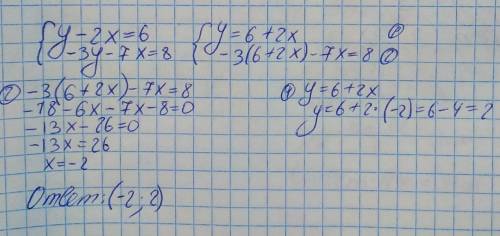 {y-2x=6 {y=6+2x ①
-3y-7x=8 -3(6+2x)-7x=8 ②
② -3(6+2x)-7x=8
-18-6x-7x-8=0
-13x-26=0
-13x=26
x=-2
① y=6+2x
y=6+2·(-2)=6-4=2
Ответ: (-2; 2)